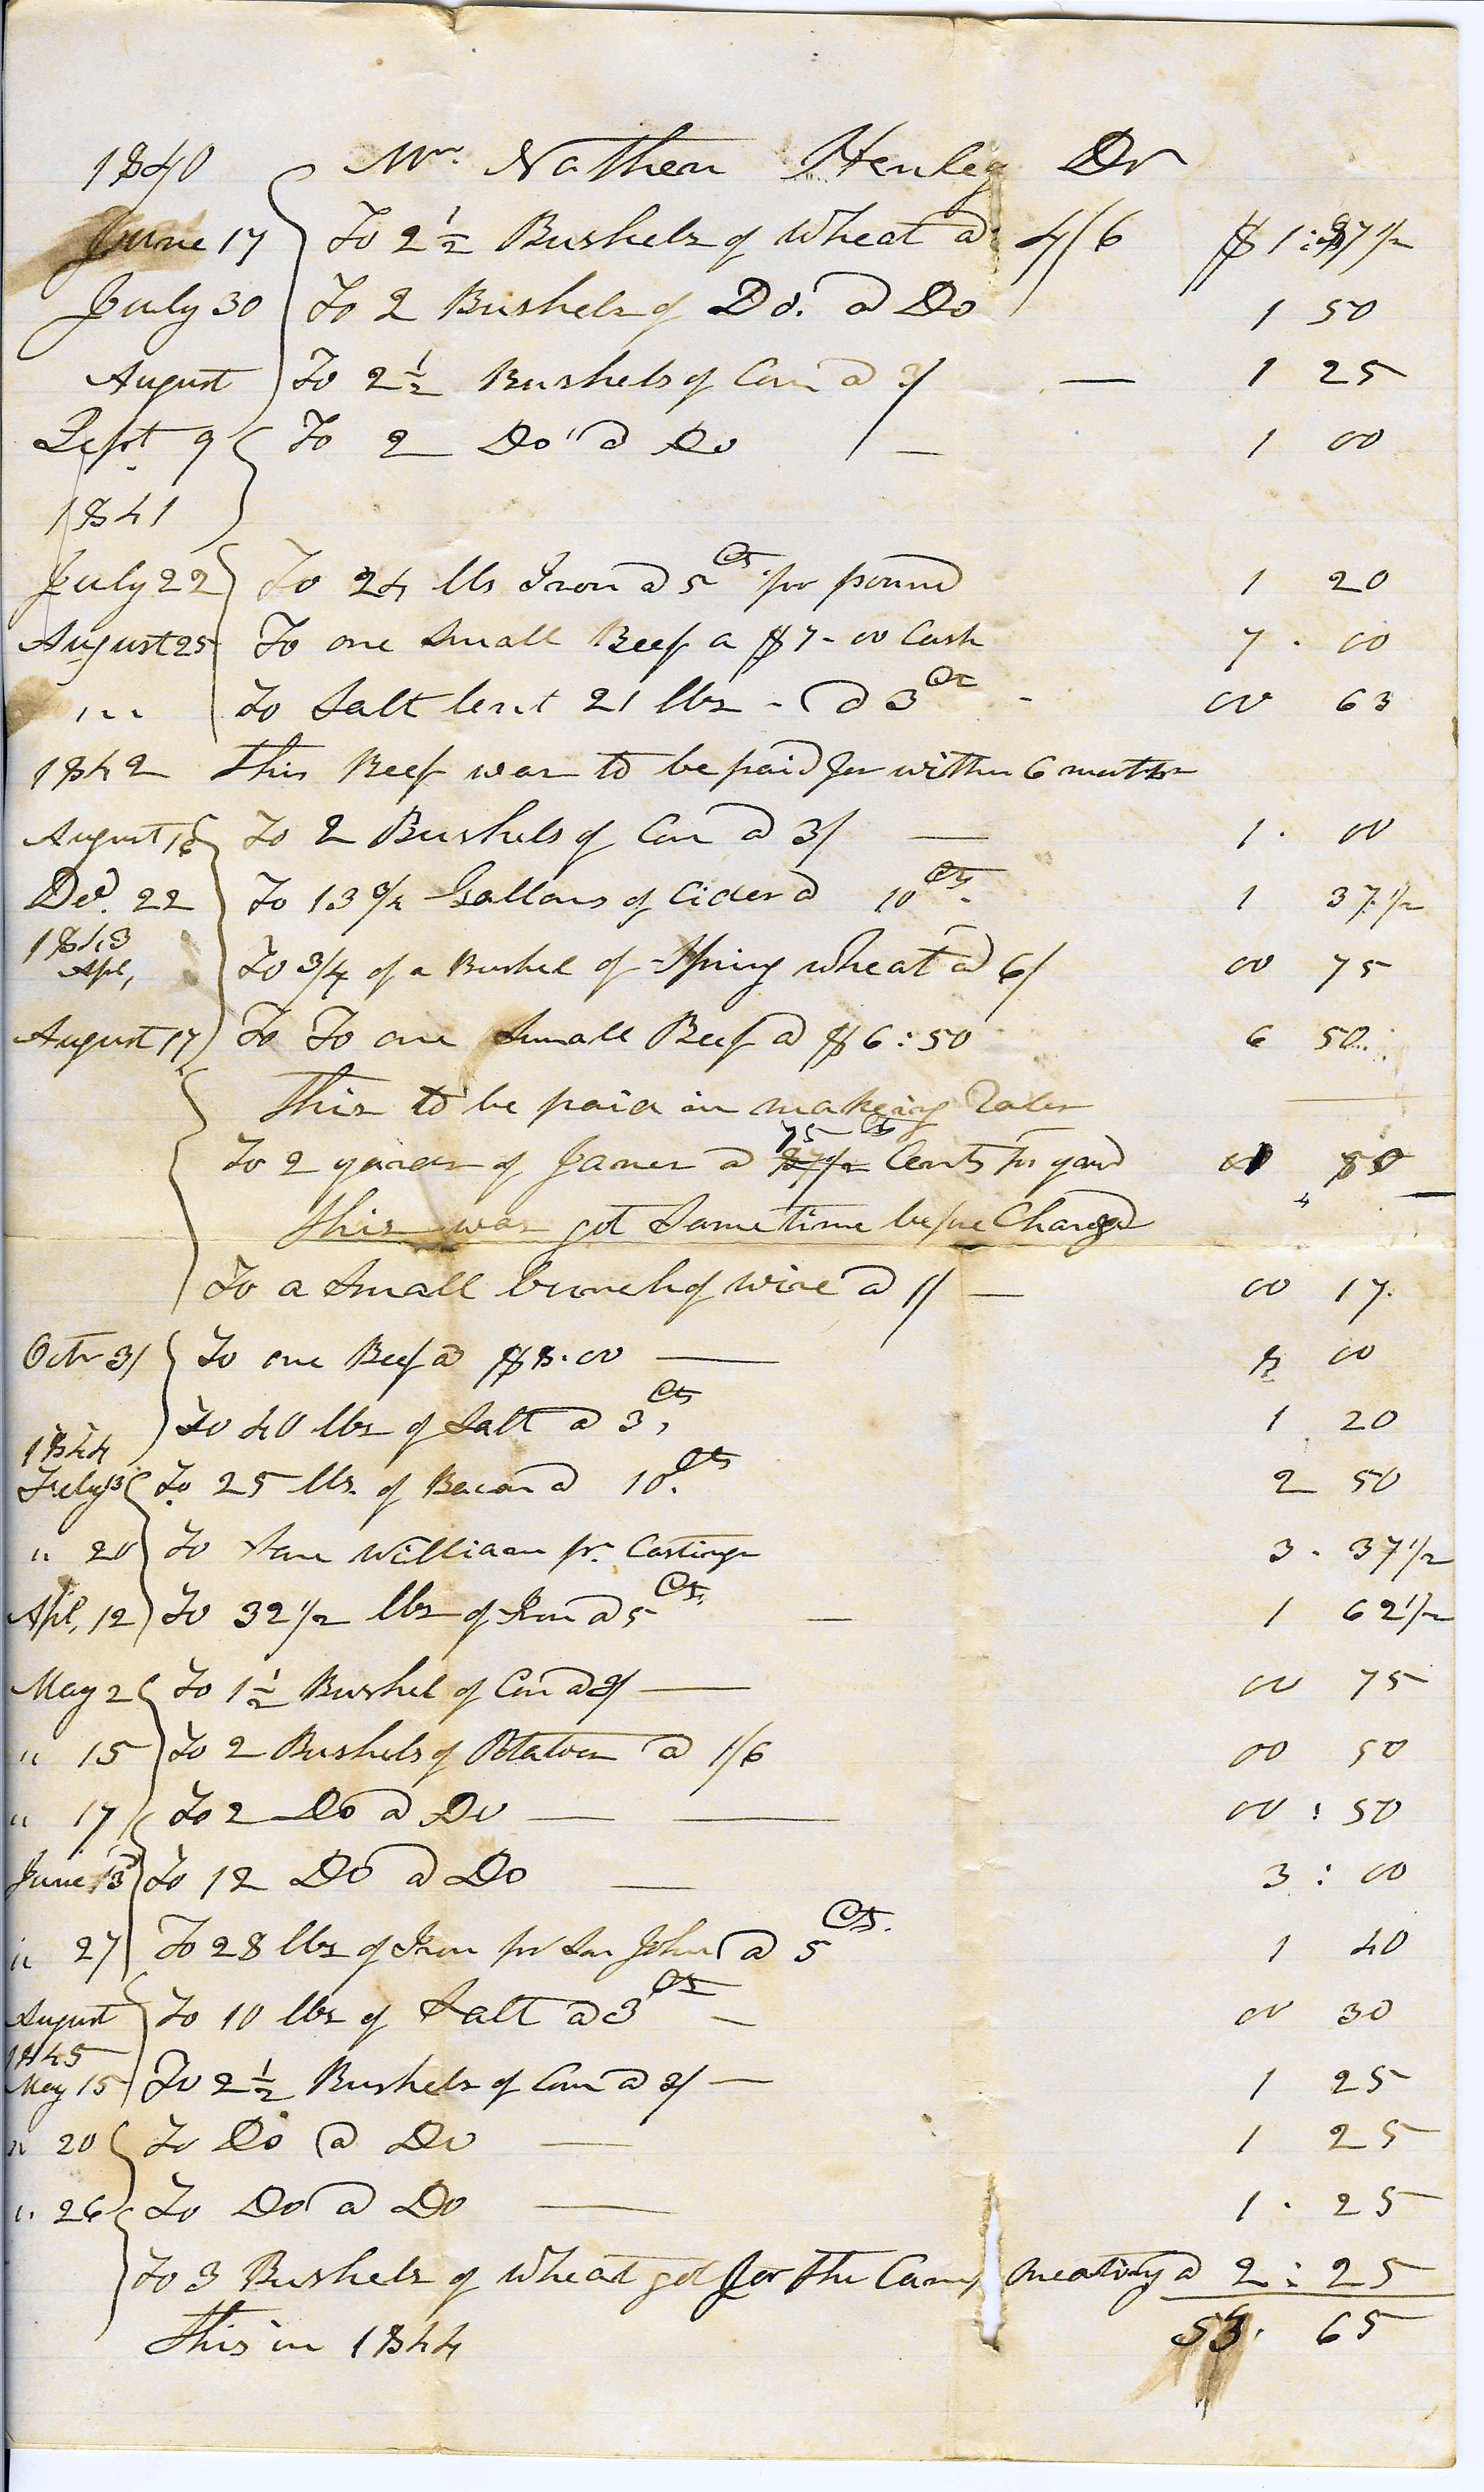 1840 Mr. Nathen Henley Dr
June 17 To 2 1/2 Bushels of Wheat a 4/6 $ 1: 87 1/2
July 30 To 2 Bushels of Do. a Do 1 50
August To 2 1/2 Bushels of Corn a 3/ — 1 25
Sept 9 To 2 Do a Do — 1 00
1841
July 22 To 24 lbs Iron a 5 Cts pr pound 1 20
August 25 To one Small Beef a $7-00 Cash 7 . 00
" To Salt lent 21 lbs - a 3 Cts - 00 63
1842 This Beef was to be paid for within 6 months
August 18 To 2 Bushels of Corn a 3/ — 1 . 00
Decr. 22 To 13 3/4 Gallons of Cider a 10 Cts. 1 37 1/2
1843
Apl, To 3/4 of a Bushel of Spring wheat a 6/ 00 75
August 17 To To one Small Beef a $6:50 6 50
This to be paid in making
To 2 yards of Janes a 75 Cts 87 1/2 Cents pr yard 1 50
This was got Sometime before Charged
To a Small bunch of wire a 1/ — 00 17.
Octr 31 To one Beef a $8.00 — 8 00
To 40 lbs of Salt a 3 Cts, 1 20
1844
July 13 To 25 lbs. of Bacon a 10 Cts. 2 50
" 20 To Son William pr. Castings 3 . 37 1/2
Apl, 12 To 32 1/2 lbs of Iron a 5 Cts. — 1 62 1/2
May 2 To 1 1/2 Bushel of Corn a 3/ — 00 75
" 15 To 2 Bushels of Potatoes a 1/6 00 50
" 17 To 2 Do a Do — — 00 : 50
June 13 To 12 Do a Do — 3 : 00
" 27 To 28 lbs of Iron pr Son John a 5 Cts. 1 40
August To 10 lbs of Salt a 3 Cts — 00 30
1845
May 15 To 2 1/2 Bushels of Corn a 3/ — 1 25
" 20 To Do a Do — 1 25
" 26 To Do a Do — 1 . 25
To 3 Bushels of Wheat got for the Camp meating a 2 : 25
This in 1844 53. 65